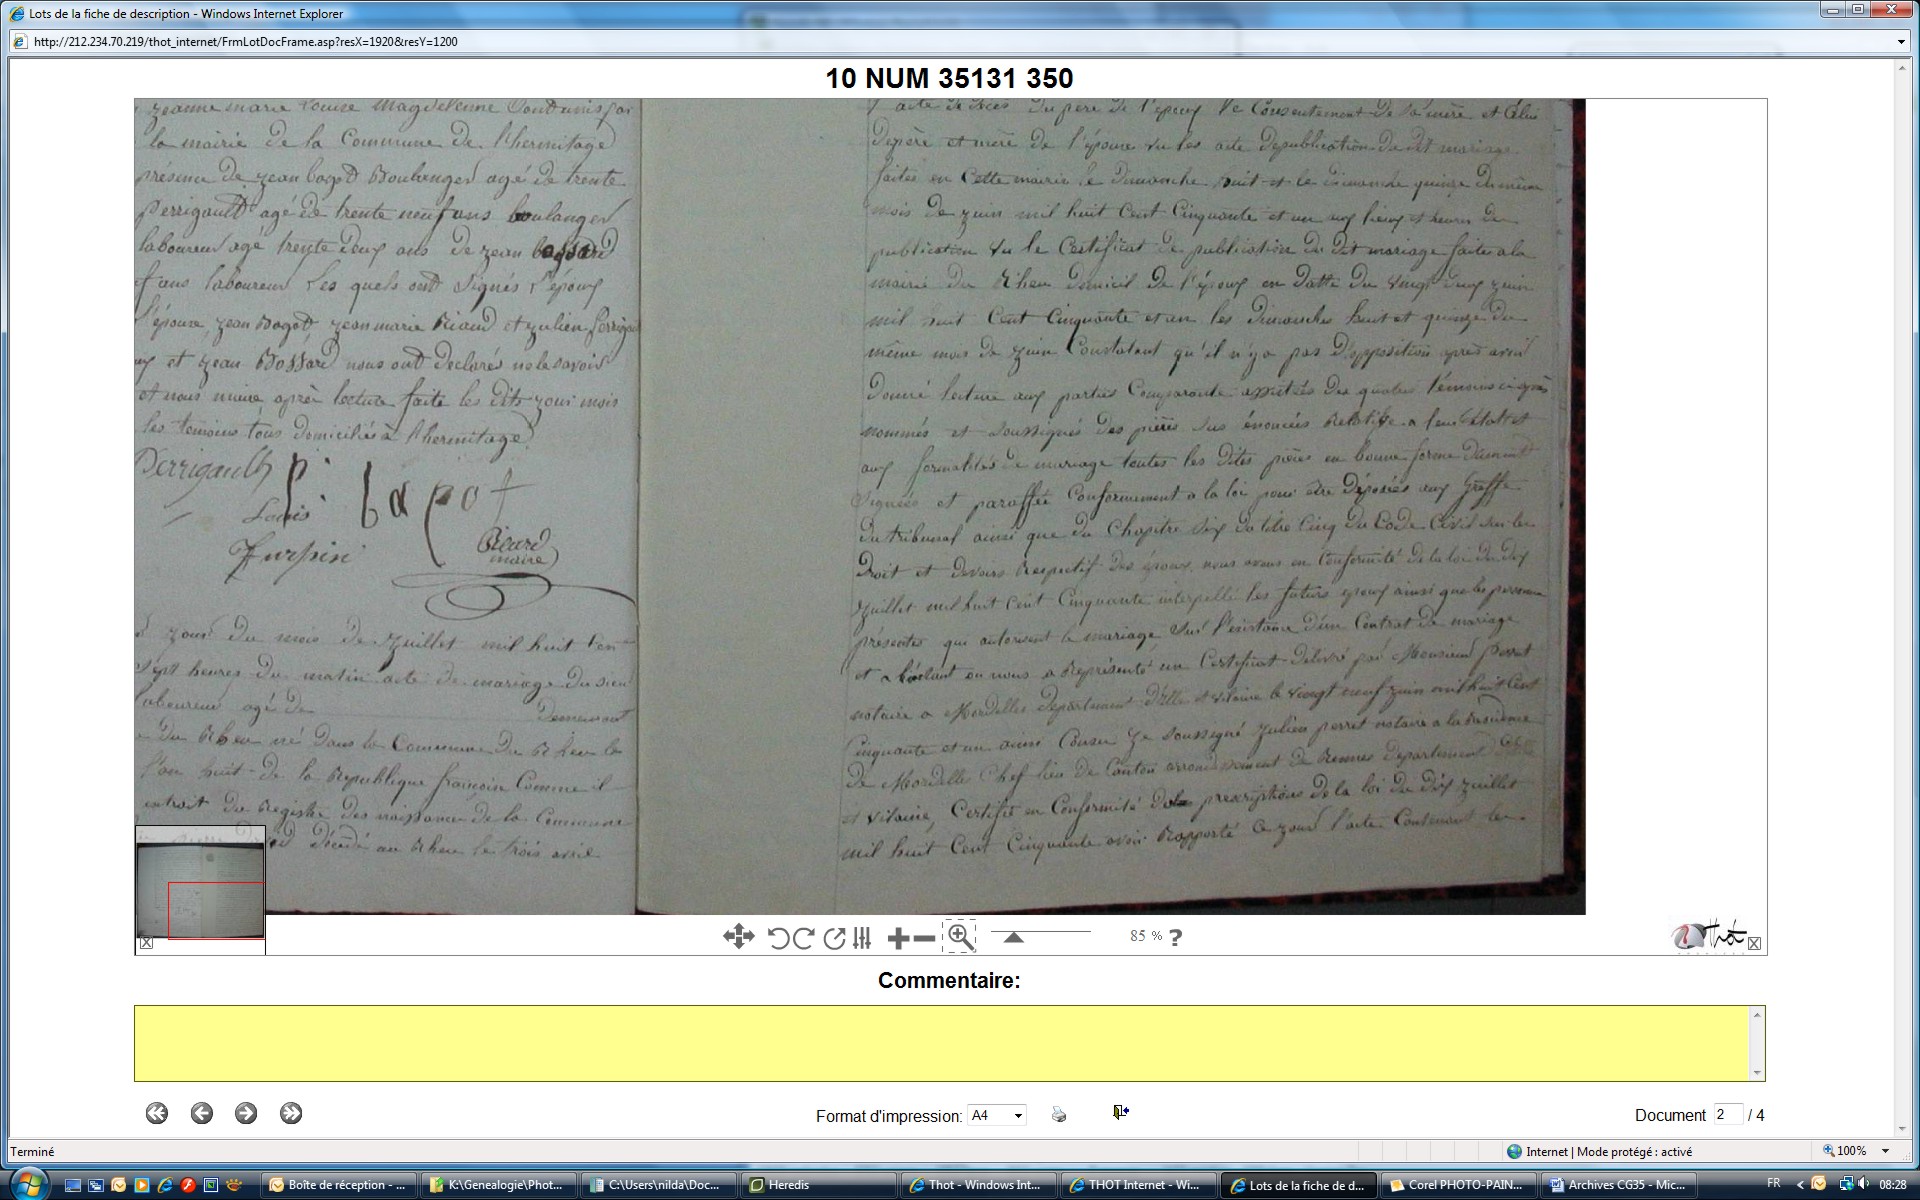 Lots de la fiche de description - Windows Internet Explorer
http://212.234.70.219/thot_internet/FrmLotDocFrame.asp?resX=1920&resY=1200
10 NUM 35131 350
la mairie de la Commune de l'hermitage
présence de jean bagot Boulanger agé de trente
Perrigault agé de trente neuf ans boulanger
laboureur agé trente deux ans de jean bossard
ans laboureur les quels ont signés l'époux
l'épouse jean Bagot, jean marie Riaud et julien perrigau
et jean Bossard nous ont declarés ne le savoir
et nous maire après lecture faite les dits jour mois
les temoins tous domiciliés à l'hermitage
Perrigault
Louis bapot
Turpin
maire
jour du mois de juillet mil huit cen
sept heures du matin acte de mariage du sieu
laboureur agé de Demeurant
du Rheu né dans la Commune du Rheu le
l'an huit de la Republique françoise Comme il
extrait du Registre des naissances de la Commune
décédé au Rheu le trois avril
acte de décès du père de l'époux le Consentement de sa mère et Celui
de père et mère de l'épouse vu les acte de publication du dit mariage
faites en Cette mairie le dimanche huit et le dimanche quinze du même
mois de juin mil huit Cent Cinquante et un aux lieux et heures de
publication vu le Certificat de publication du dit mariage faites a la
mairie du Rheu domicil de l'époux en datte du vingt deux juin
mil huit Cent Cinquante et un les dimanches huit et quinze du
même mois de juin Constatant qu'il n'y a pas d'opposition après avoir
Donné lecture aux parties Comparante assistées des quatres témoins ci après
nommés et soussignés des pièces sus énoncées Relative a leur état et
aux formalités de mariage toutes les dites pièces en bonne forme dument
signées et paraffée Conformement a la loi pour être déposées aux Greffe
du tribunal ainsi que du Chapitre six du titre Cinq du Code Civil sur les
Droit et devoirs Respectif des époux, nous avons en Conformité de la loi du dix
juillet mil huit Cent Cinquante interpellé les futurs époux ainsi que les personnes
présentes qui autorisent le mariage sur l'existance d'un Contrat de mariage
et a l'instant on nous a Représenté un Certificat délivré par Monsieur perret
notaire a Mordelles Departement d'ille et vilaine le vingt neuf juin mil huit Cent
Cinquante et un ainsi Conçu je soussigné julien perret notaire a la Residence
de Mordelles Chef lieu de Canton arrondissement de Rennes departement d'ille
et vilaine, Certifie en Conformité des prescriptions de la loi du dix juillet
mil huit Cent Cinquante avoir Rapporté Ce jour l'acte Contenant les
85 % ?
Thot
Commentaire:
Format d'impression: A4
Document 2 / 4
Terminé
Internet | Mode protégé : activé
100%
Boîte de réception - ...
K:\Genealogie\Phot...
C:\Users\nilda\Doc...
Heredis
Thot - Windows Int...
THOT Internet - Wi...
Lots de la fiche de d...
Corel PHOTO-PAIN...
Archives CG35 - Mic...
FR
08:28